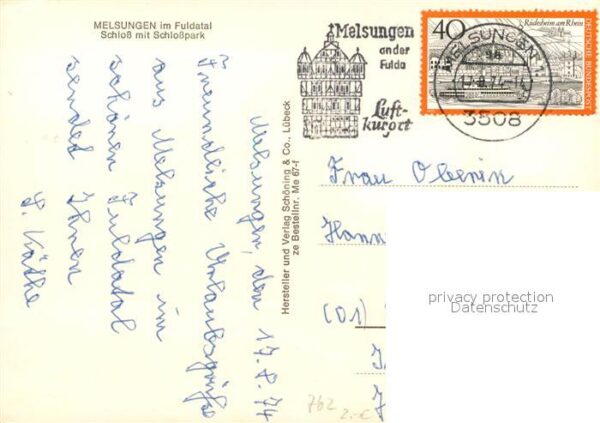 MELSUNGEN im Fuldatal
Schloß mit Schloßpark
Melsungen, den 17.8.74
Freundliche Urlaubsgrüße
aus Melsungen im
schönen Fuldatal
sendet Ihnen
Käthe
Hersteller und Verlag Schöning & Co., Lübeck
ze Bestellnr. Me 67-f
Melsungen
an der
Fulda
Luft-
kurort
MELSUNGEN 1
17.8.74-14
3508
40
Rüdesheim am Rhein
DEUTSCHE BUNDESPOST
Frau Oberin
Hann
(01)
privacy protection
Datenschutz
762
2.-€